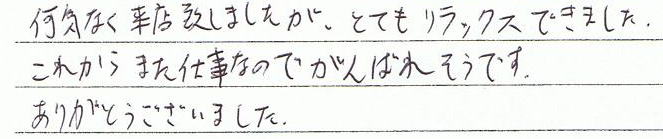 何気なく来店致しましたが、とてもリラックスできました.
これからまた仕事なのでがんばれそうです.
ありがとうございました.